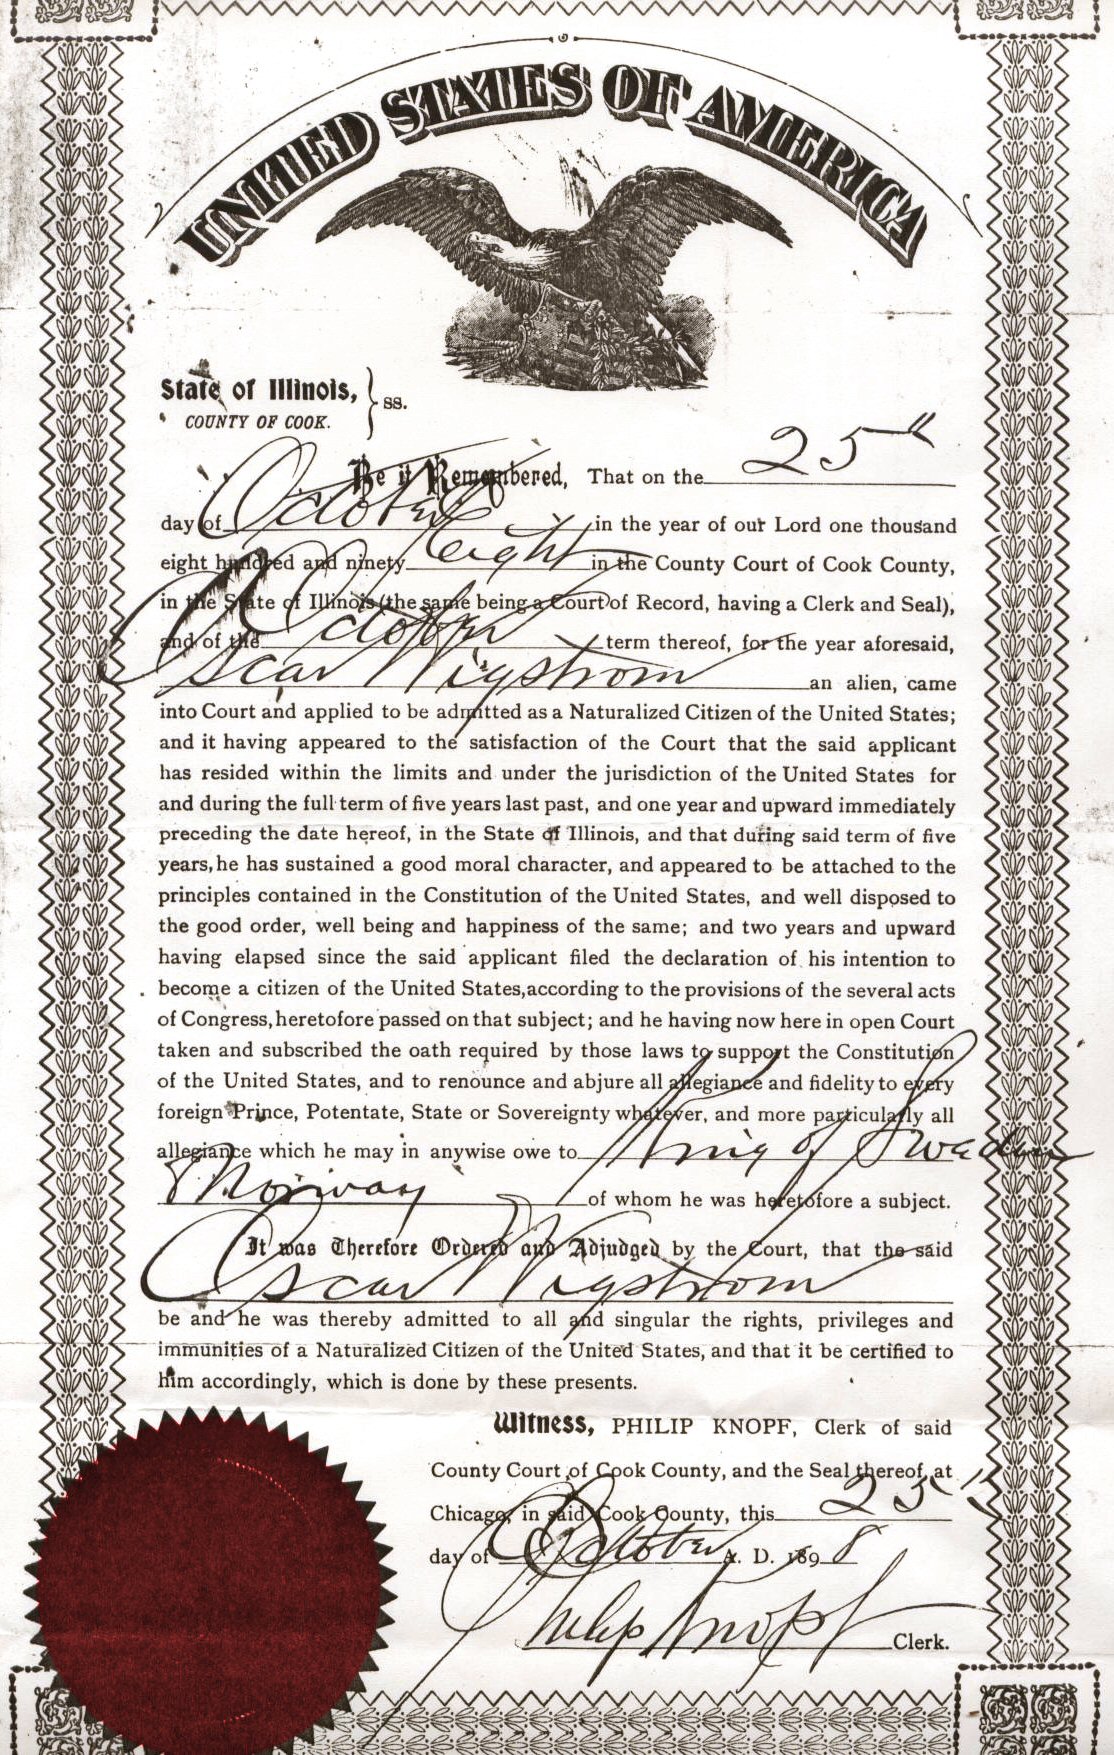 UNITED STATES OF AMERICA
State of Illinois,
COUNTY OF COOK.
ss.
Be it Remembered, That on the 25"
day of October in the year of our Lord one thousand
eight hundred and ninety eight in the County Court of Cook County,
in the State of Illinois (the same being a Court of Record, having a Clerk and Seal),
and of the October term thereof, for the year aforesaid,
Oscar Wigstrom an alien, came
into Court and applied to be admitted as a Naturalized Citizen of the United States;
and it having appeared to the satisfaction of the Court that the said applicant
has resided within the limits and under the jurisdiction of the United States for
and during the full term of five years last past, and one year and upward immediately
preceding the date hereof, in the State of Illinois, and that during said term of five
years, he has sustained a good moral character, and appeared to be attached to the
principles contained in the Constitution of the United States, and well disposed to
the good order, well being and happiness of the same; and two years and upward
having elapsed since the said applicant filed the declaration of his intention to
become a citizen of the United States, according to the provisions of the several acts
of Congress, heretofore passed on that subject; and he having now here in open Court
taken and subscribed the oath required by those laws to support the Constitution
of the United States, and to renounce and abjure all allegiance and fidelity to every
foreign Prince, Potentate, State or Sovereignty whatever, and more particularly all
allegiance which he may in anywise owe to King of Sweden
& Norway of whom he was heretofore a subject.
It was Therefore Ordered and Adjudged by the Court, that the said
Oscar Wigstrom
be and he was thereby admitted to all and singular the rights, privileges and
immunities of a Naturalized Citizen of the United States, and that it be certified to
him accordingly, which is done by these presents.
Witness, PHILIP KNOPF, Clerk of said
County Court of Cook County, and the Seal thereof, at
Chicago, in said Cook County, this 25"
day of October A. D. 1898
Philip Knopf Clerk.